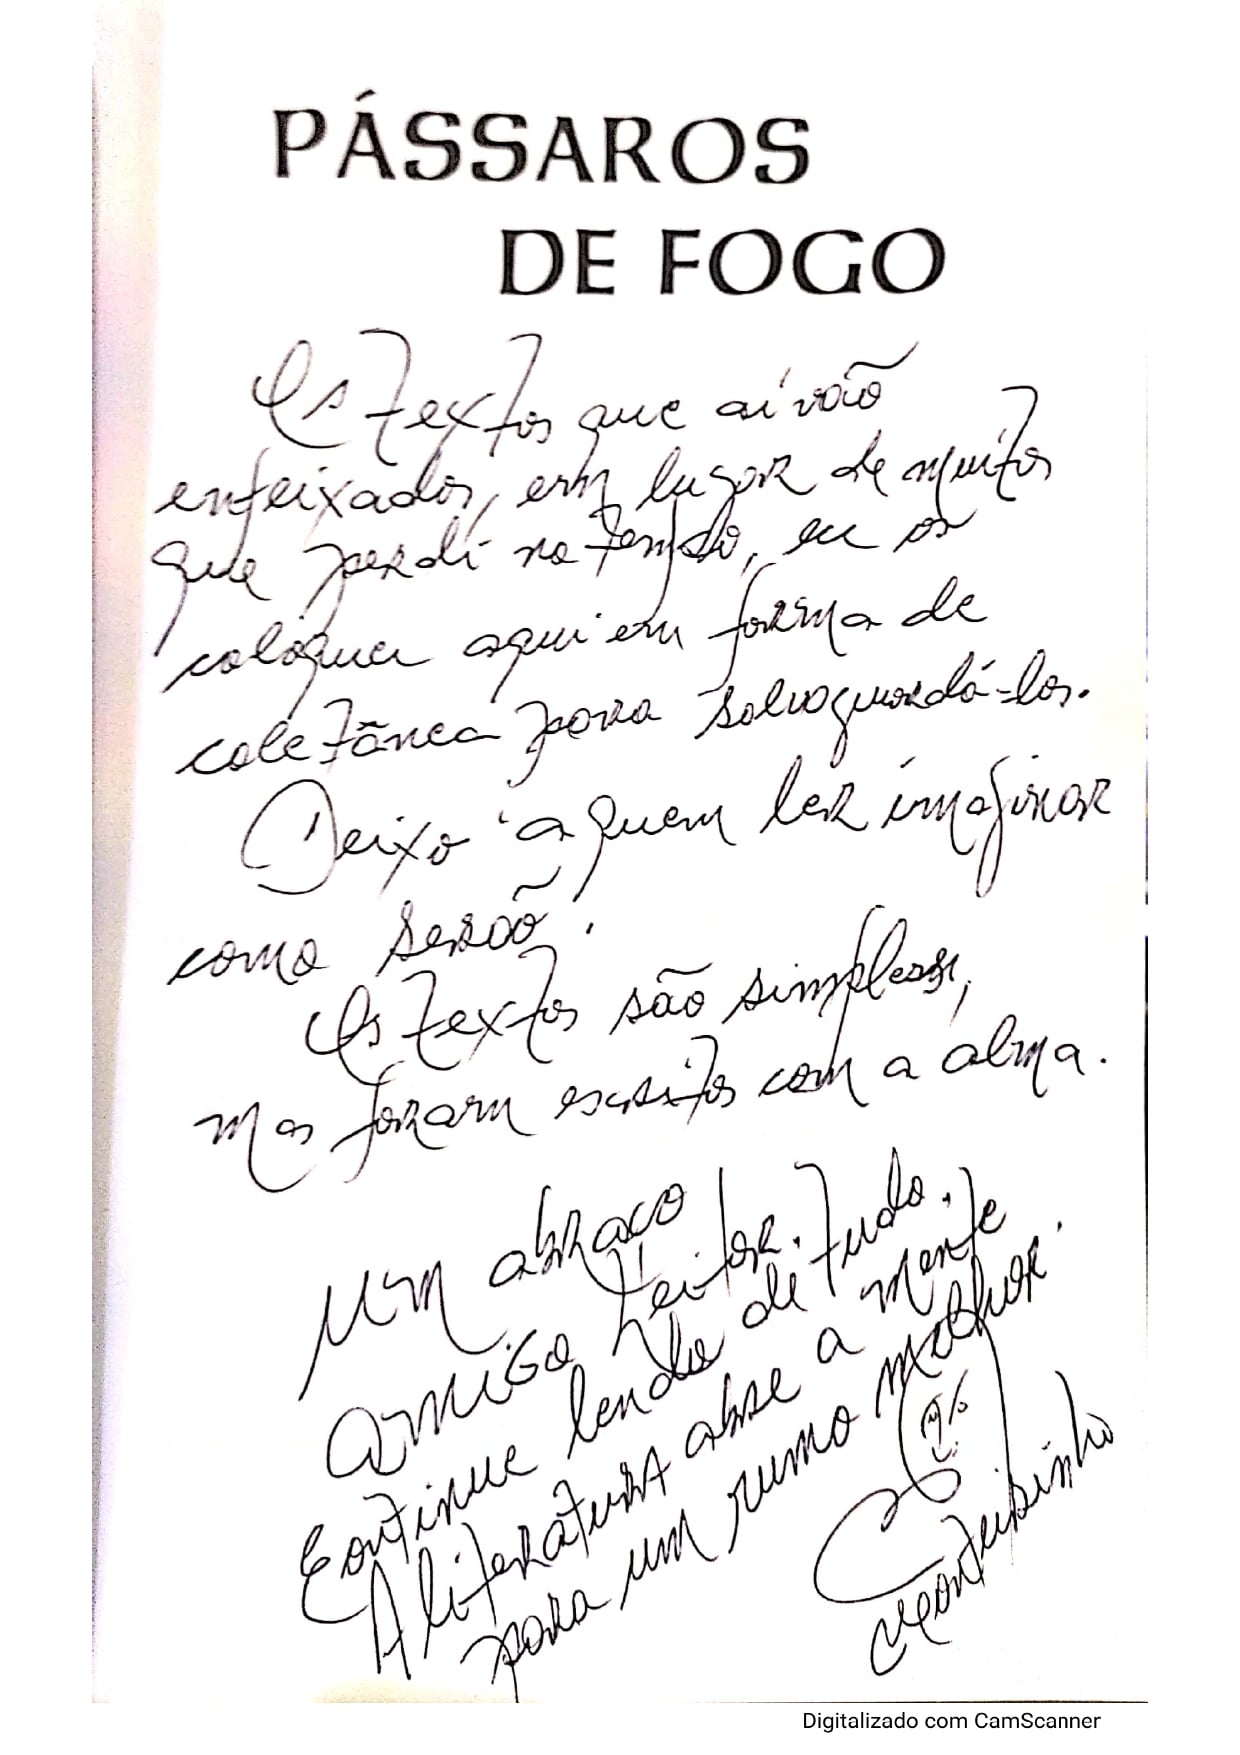 PÁSSAROS
DE FOGO
Os textos que aí vão
enfeixados, em lugar de muitos
que perdi no tempo, eu os
coloquei aqui em forma de
coletânea para salvaguardá-los.
Deixo a quem ler imaginar
como serão.
Os textos são simples,
mas foram escritos com a alma.
Um abraço
amigo Leitor.
Continue lendo de tudo.
A literatura abre a mente
para um rumo melhor.
Digitalizado com CamScanner